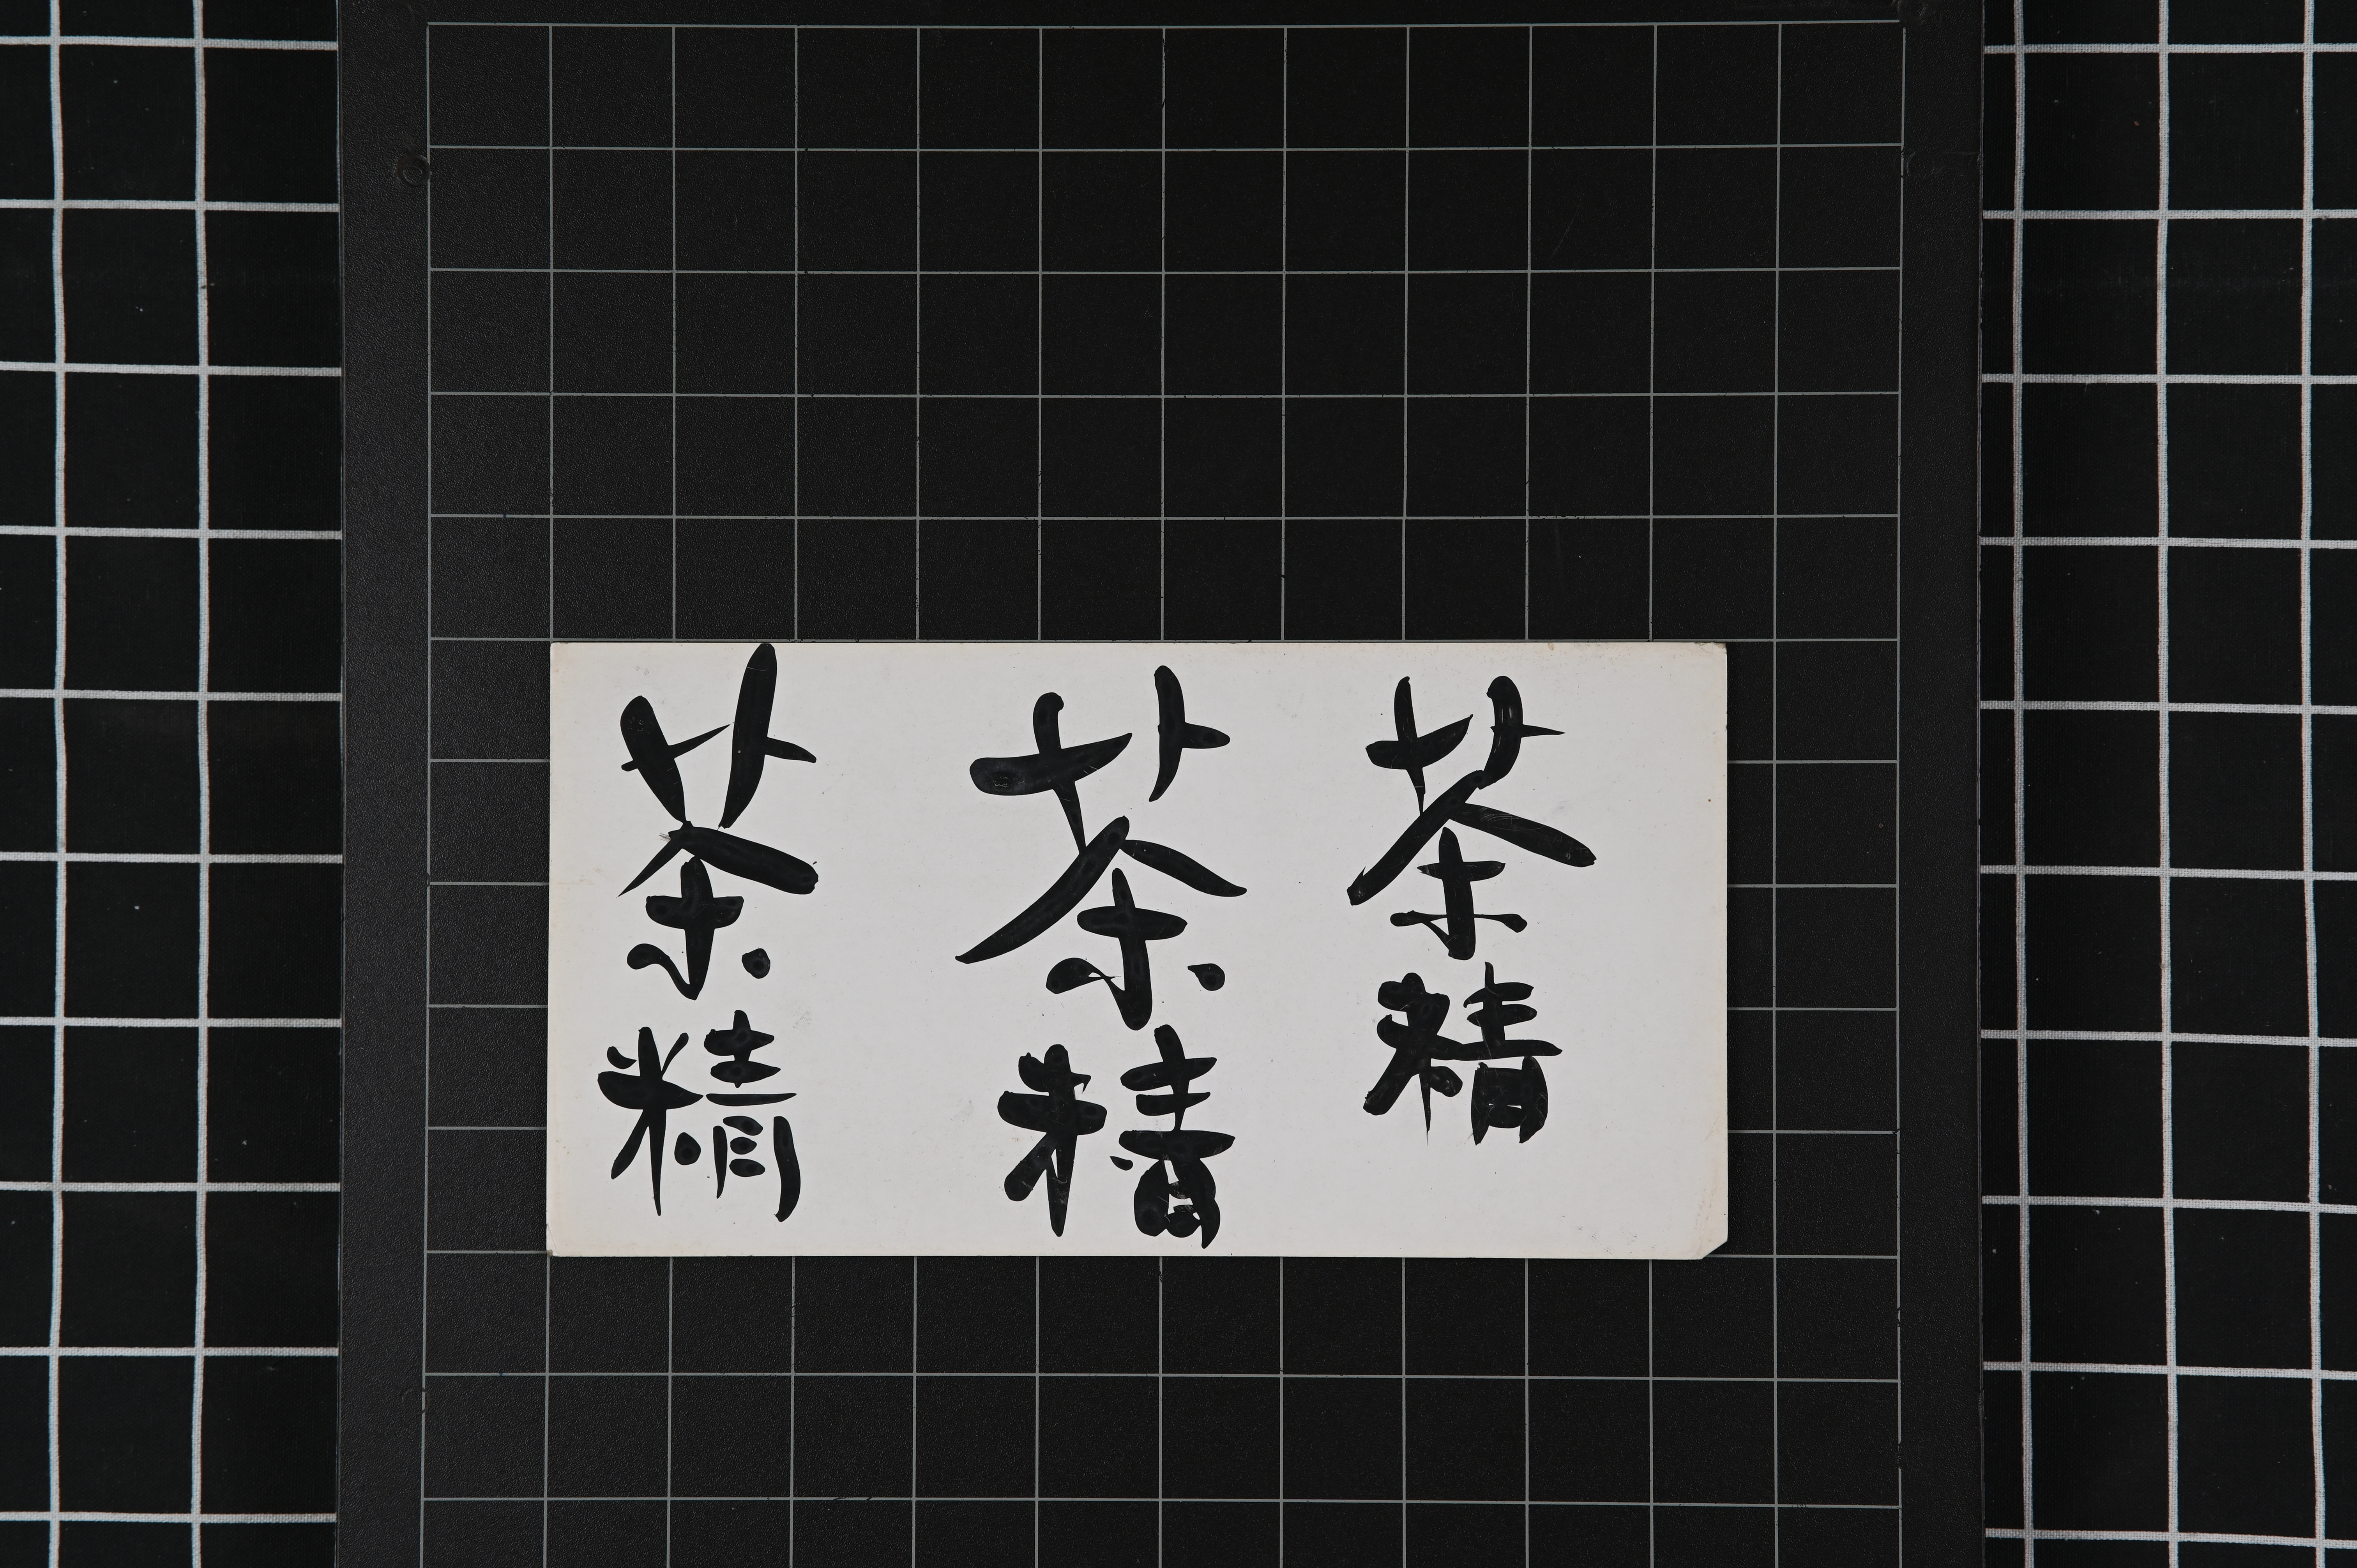 茶精
茶精
茶精